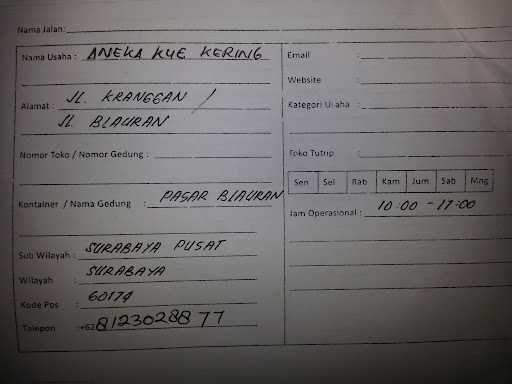 Nama Jalan:
Nama Usaha : ANEKA KUE KERING
Alamat : JL. KRANGGAN /
JL. BLAURAN
Nomor Toko / Nomor Gedung :
Kontainer / Nama Gedung : PASAR BLAURAN
Sub Wilayah : SURABAYA PUSAT
Wilayah : SURABAYA
Kode Pos : 60174
Telepon : +628123028877
Email :
Website :
Kategori Usaha :
Toko Tutup :
Sen Sel Rab Kam Jum Sab Mng
Jam Operasional : 10.00 - 17.00